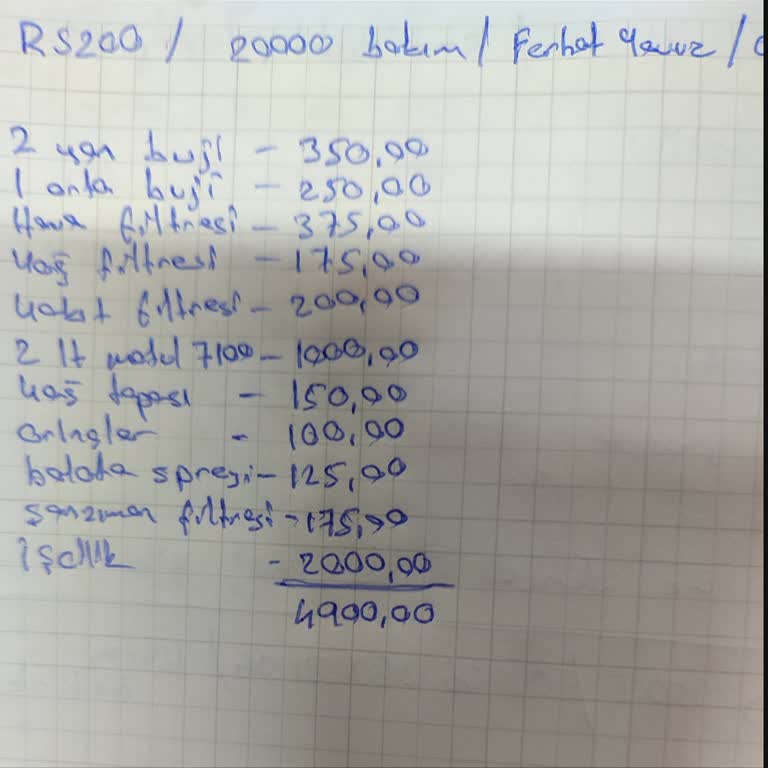 RS200 / 20000 bakım / Ferhat Yavuz /
2 yan buji - 350,00
1 orta buji - 250,00
Hava filtresi - 375,00
Yağ filtresi - 175,00
Yakıt filtresi - 200,00
2 lt motul 7100 - 1000,00
Yağ tapası - 150,00
Oringler - 100,00
balata spreyi - 125,00
şanzıman filtresi - 175,00
işçilik - 2000,00
4900,00